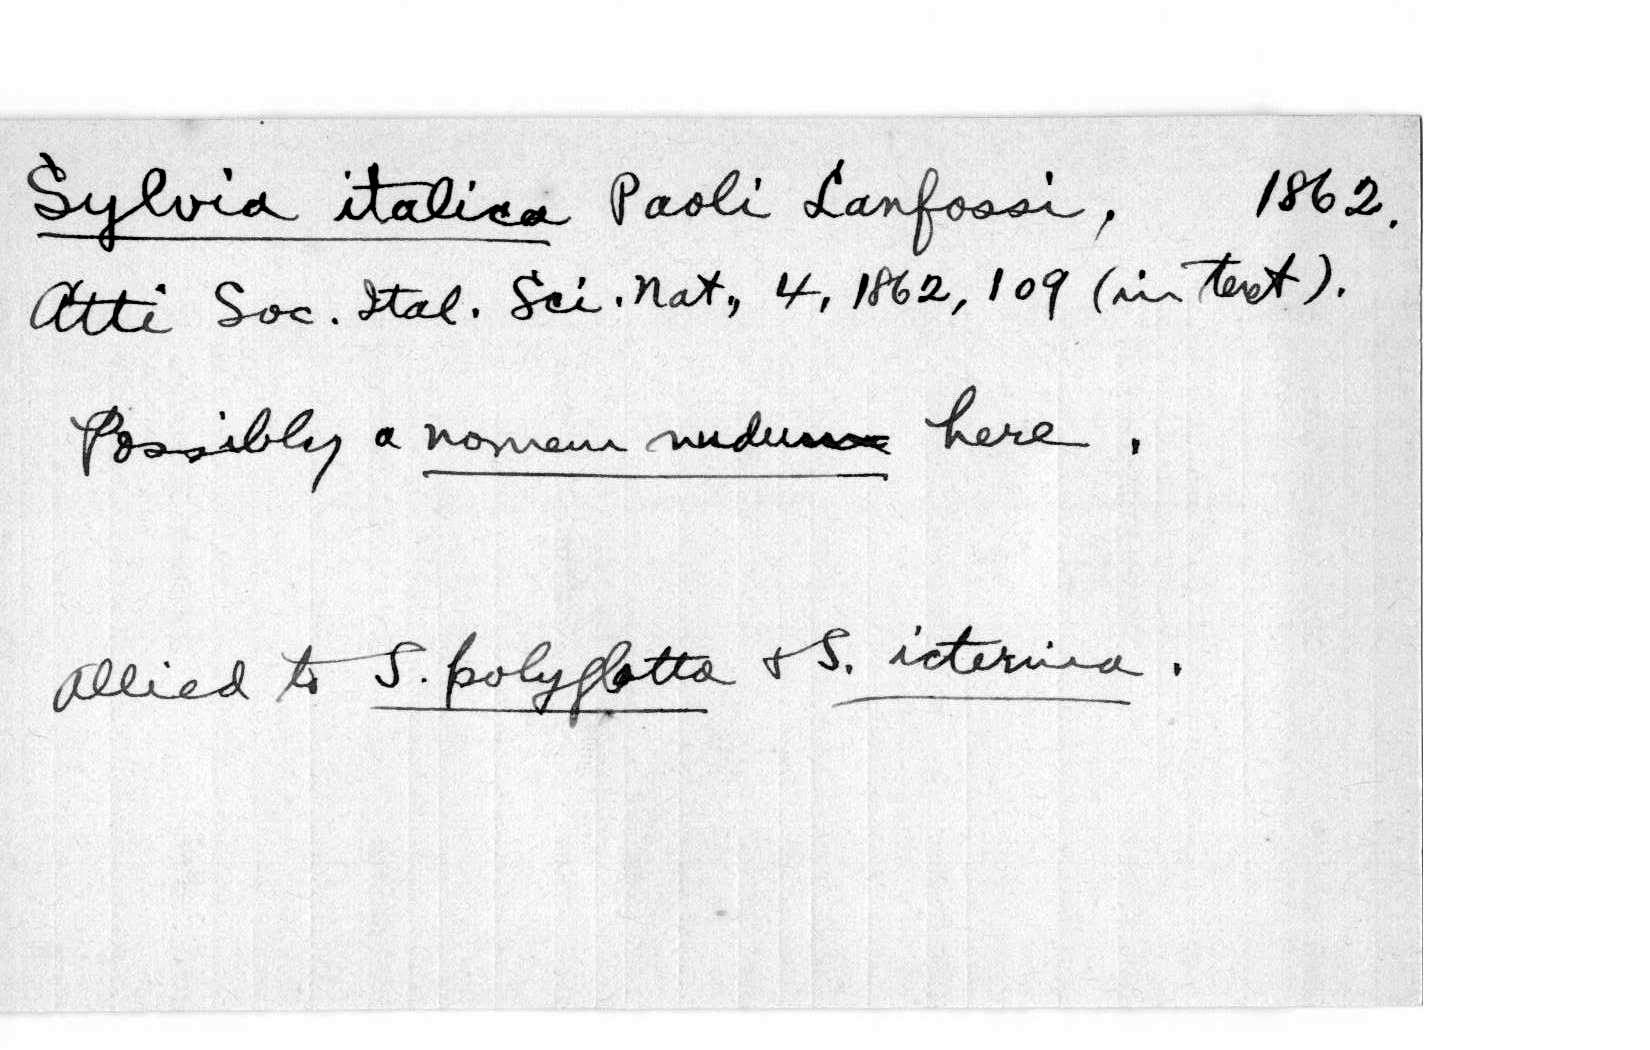 Sylvia italica Paoli Lanfossi, 1862.
Atti Soc. Ital. Sci. Nat., 4, 1862, 109 (in text).
Possibly a nomen nudum here.
Allied to S. polyglotta & S. icterina.